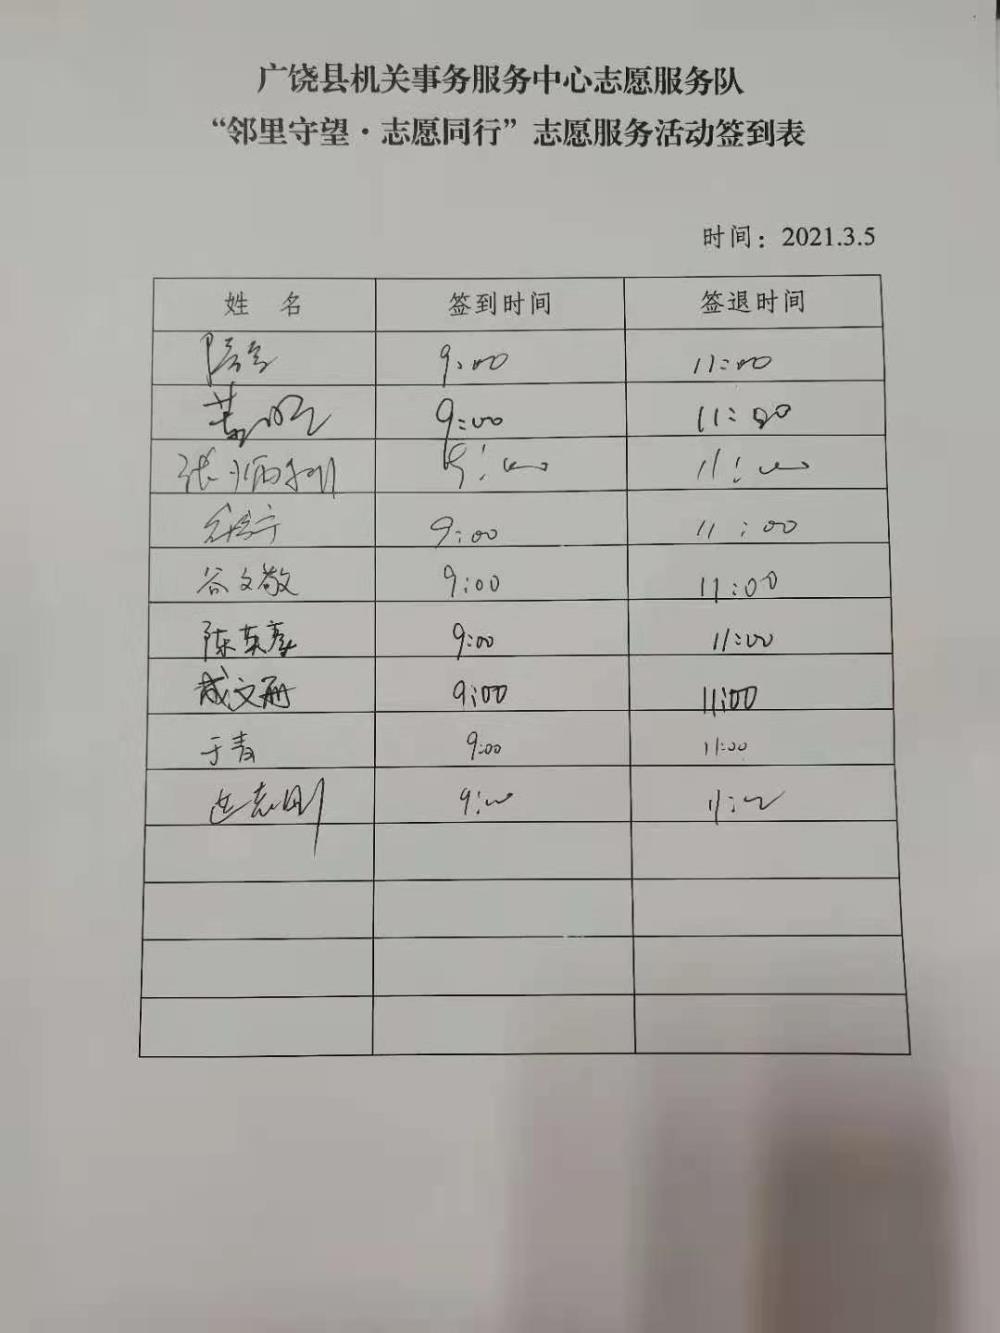 广饶县机关事务服务中心志愿服务队
“邻里守望·志愿同行”志愿服务活动签到表
时间：2021.3.5
姓 名 签到时间 签退时间
9:00 11:00
9:00 11:00
9:00 11:00
9:00 11:00
谷文敬 9:00 11:00
陈英 9:00 11:00
成文 9:00 11:00
于青 9:00 11:00
志刚 9:00 11:00